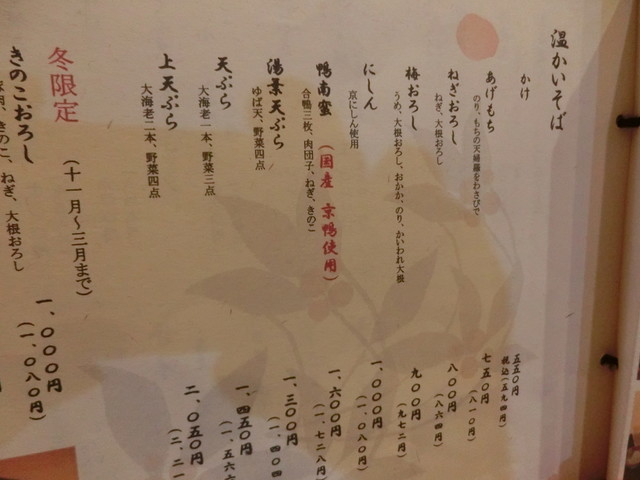 温かいそば
かけ
五五〇円
税込(五九四円)
あげもち
のり、もちの天婦羅をわさびで
七五〇円
(八一〇円)
ねぎおろし
ねぎ、大根おろし
八〇〇円
(八六四円)
梅おろし
うめ、大根おろし、おかか、のり、かいわれ大根
九〇〇円
(九七二円)
にしん
京にしん使用
一、〇〇〇円
(一、〇八〇円)
鴨南蛮
(国産 京鴨使用)
合鴨三枚、肉団子、ねぎ、きのこ
一、六〇〇円
(一、七二八円)
湯葉天ぷら
ゆば天、野菜四点
一、三〇〇円
(一、四〇四
天ぷら
大海老一本、野菜三点
一、四五〇円
(一、五六
上天ぷら
大海老二本、野菜四点
二、〇五〇円
(二、二一
冬限定
(十一月〜三月まで)
きのこおろし
きのこ、ねぎ、大根おろし
一、〇〇〇円
(一、〇八〇円)